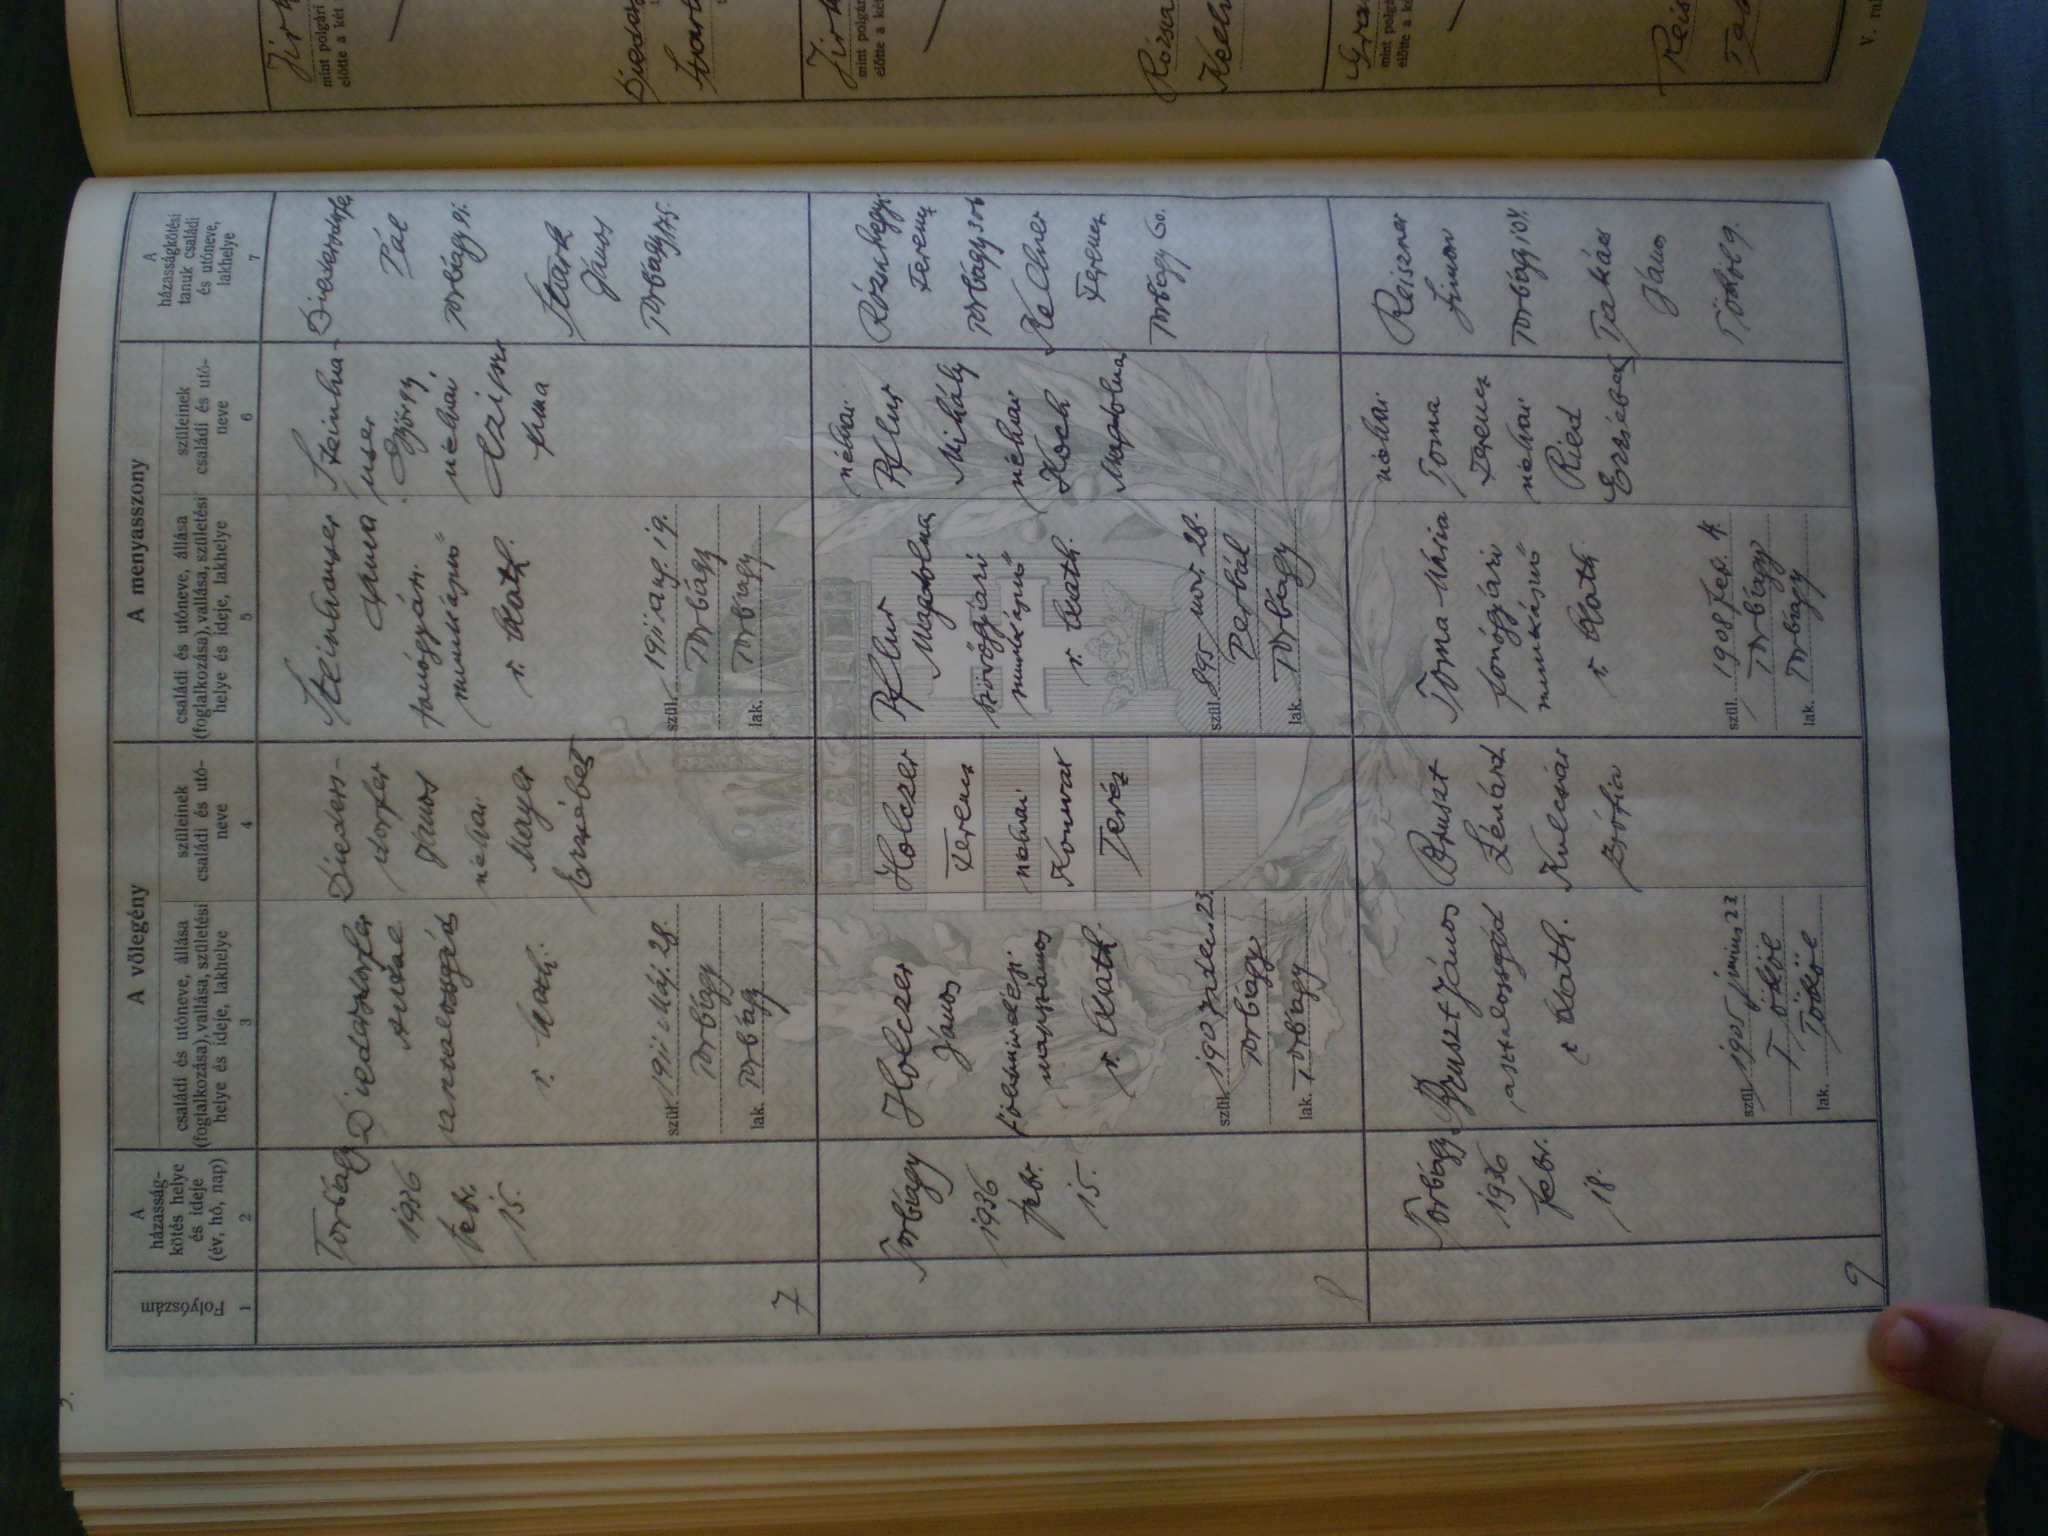 3.
Folyószám
1
A
házasság-
kötés helye
és ideje
(év, hó, nap)
2
A vőlegény
családi és utóneve, állása
(foglalkozása), vallása, születési
helye és ideje, lakhelye
3
szüleinek
családi és utó-
neve
4
A menyasszony
családi és utóneve, állása
(foglalkozása), vallása, születési
helye és ideje, lakhelye
5
szüleinek
családi és utó-
neve
6
A
házasságkötési
tanuk családi
és utóneve,
lakhelye
7
7
Torbágy
1936
febr.
15.
r. kath.
szül. 1911 Máj. 28.
Torbágy
lak. Torbágy
János
néhai
Mayer
Erzsébet
Steinhauser
Anna
r. kath.
szül. 1911 aug. 19.
Torbágy
lak. Torbágy
Steinha-
user
György
néhai
Anna
Pál
Torbágy 91.
Stark
János
Torbágy 75.
8
Torbágy
1936
febr.
15.
Holczer
János
földmívelési
napszámos
r. kath.
szül. 1907 dec. 23.
Torbágy
lak. Torbágy
Holczer
Ferenc
néhai
Teréz
Pflur
Magdolna
szövőgyári
munkásnő
r. kath.
szül. 895 nov. 28.
Perbál
lak. Torbágy
néhai
Pflur
Mihály
néhai
Koch
Magdolna
Rózsahegyi
Ferenc
Torbágy
Kellner
Ferenc
Torbágy 60.
9
Torbágy
1936
febr.
18.
Bruszt János
asztalossegéd
r. kath.
szül. 1905 június 22
Tököl
lak. Tököl
Bruszt
Lénárd
Kulcsár
Zsófia
Toma Mária
fonógyári
munkásnő
r. kath.
szül. 1908 feb. 4.
Torbágy
lak. Torbágy
néhai
Toma
Ferenc
néhai
Ried
Erzsébet
Reiszner
Simon
Torbágy 104.
Takács
János
Tököl 9.
mint polgári
előtte a két
mint polgári
előtte a két
mint polgári
előtte a két